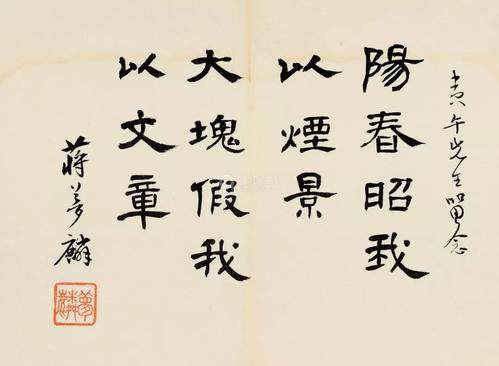 午先生留念
陽春昭我
以煙景
大塊假我
以文章
蔣夢麟
夢麟